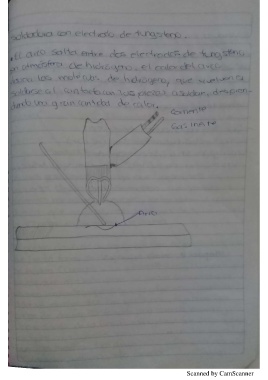 Soldadura con electrodo de tungsteno.
• El arco salta entre dos electrodos de tungsteno
en atmósfera de hidrogeno, el calor del arco
las moleculas de hidrogeno, que vuelven a
al contacto con las piezas a soldar, despren-
diendo una gran cantidad de calor.
Corriente
Gas inerte
Arco
Scanned by CamScanner